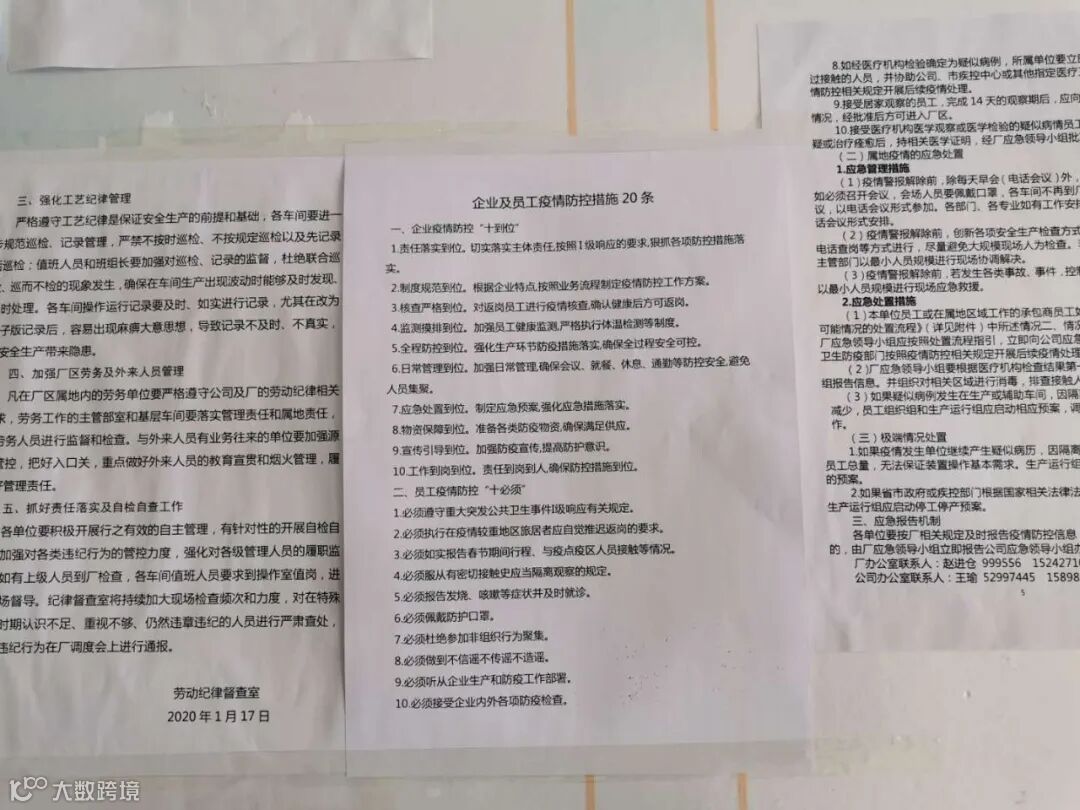 三、强化工艺纪律管理
严格遵守工艺纪律是保证安全生产的前提和基础，各车间要进一
步规范巡检、记录管理，严禁不按时巡检、不按规定巡检以及先记录
巡检；值班人员和班组长要加强对巡检、记录的监督，杜绝联合巡
、巡而不检的现象发生，确保在车间生产出现波动时能够及时发现、
时处理。各车间操作运行记录要及时、如实进行记录，尤其在改为
子版记录后，容易出现麻痹大意思想，导致记录不及时、不真实，
安全生产带来隐患。
四、加强厂区劳务及外来人员管理
凡在厂区属地内的劳务单位要严格遵守公司及厂的劳动纪律相关
求，劳务工作的主管部室和基层车间要落实管理责任和属地责任，
劳务人员进行监督和检查。与外来人员有业务往来的单位要加强源
管控，把好入口关，重点做好外来人员的教育宣贯和烟火管理，履
好管理责任。
五、抓好责任落实及自检自查工作
各单位要积极开展行之有效的自主管理，有针对性的开展自检自
加强对各类违纪行为的管控力度，强化对各级管理人员的履职监
如有上级人员到厂检查，各车间值班人员要求到操作室值岗，进
场督导。纪律督查室将持续加大现场检查频次和力度，对在特殊
时期认识不足、重视不够、仍然违章违纪的人员进行严肃查处，
违纪行为在厂调度会上进行通报。
劳动纪律督查室
2020 年 1 月 17 日
企业及员工疫情防控措施 20 条
一、企业疫情防控“十到位”
1.责任落实到位。切实落实主体责任,按照Ⅰ级响应的要求,狠抓各项防控措施落
实。
2.制度规范到位。根据企业特点,按照业务流程制定疫情防控工作方案。
3.核查严格到位。对返岗员工进行疫情核查,确认健康后方可返岗。
4.监测摸排到位。加强员工健康监测,严格执行体温检测等制度。
5.全程防控到位。强化生产环节防疫措施落实,确保全过程安全可控。
6.日常管理到位。加强日常管理,确保会议、就餐、休息、通勤等防控安全,避免
人员集聚。
7.应急处置到位。制定应急预案,强化应急措施落实。
8.物资保障到位。准备各类防疫物资,确保满足供应。
9.宣传引导到位。加强防疫宣传,提高防护意识。
10.工作到岗到位。责任到岗到人,确保防控措施到位。
二、员工疫情防控“十必须”
1.必须遵守重大突发公共卫生事件Ⅰ级响应有关规定。
2.必须执行在疫情较重地区旅居者应自觉推迟返岗的要求。
3.必须如实报告春节期间行程、与疫点疫区人员接触等情况。
4.必须服从有密切接触史应当隔离观察的规定。
5.必须报告发烧、咳嗽等症状并及时就诊。
6.必须佩戴防护口罩。
7.必须杜绝参加非组织行为聚集。
8.必须做到不信谣不传谣不造谣。
9.必须听从企业生产和防疫工作部署。
10.必须接受企业内外各项防疫检查。
8.如经医疗机构检验确定为疑似病例，所属单位要立即
过接触的人员，并协助公司、市疾控中心或其他指定医疗
情防控相关规定开展后续疫情处理。
9.接受居家观察的员工，完成 14 天的观察期后，应向
情况，经批准后方可进入厂区。
10.接受医疗机构医学观察或医学检验的疑似病情员工
疑或治疗痊愈后，持相关医学证明，经厂应急领导小组批
（二）属地疫情的应急处置
1.应急管理措施
（1）疫情警报解除前，除每天早会（电话会议）外，
如必须召开会议，会场人员要佩戴口罩，各车间不再到厂
议，以电话会议形式参加。各部门、各专业如有工作安排
话会议形式安排。
（2）疫情警报解除前，创新各项安全生产检查方式
电话查岗等方式进行，尽量避免大规模现场人为检查。
主管部门以最小人员规模进行现场协调解决。
（3）疫情警报解除前，若发生各类事故、事件，控
以最小人员规模进行现场应急救援。
2.应急处置措施
（1）本单位员工或在属地区域工作的承包商员工如
可能情况的处置流程》（详见附件）中所述情况二、情况
厂应急领导小组应按照处置流程指引，立即向公司应急
卫生防疫部门按照疫情防控相关规定开展后续疫情处理
（2）厂应急领导小组要根据医疗机构检查结果第一
组报告信息。并组织对相关区域进行消毒，排查接触人
（3）如果疑似病例发生在生产或辅助车间，因隔
减少，员工组织组和生产运行组应启动相应预案，调
作。
（三）极端情况处置
1.如果疫情发生单位继续产生疑似病历，因隔离
员工总量，无法保证装置操作基本需求。生产运行组
的预案。
2.如果省市政府或疾控部门根据国家相关法律法
生产运行组应启动停工停产预案。
三、应急报告机制
各单位要按厂相关规定及时报告疫情防控信息
的，由厂应急领导小组立即报告公司应急领导小组办
厂办公室联系人：赵进仓 999556 15242710
公司办公室联系人：王瑜 52997445 15898
5
大数跨境